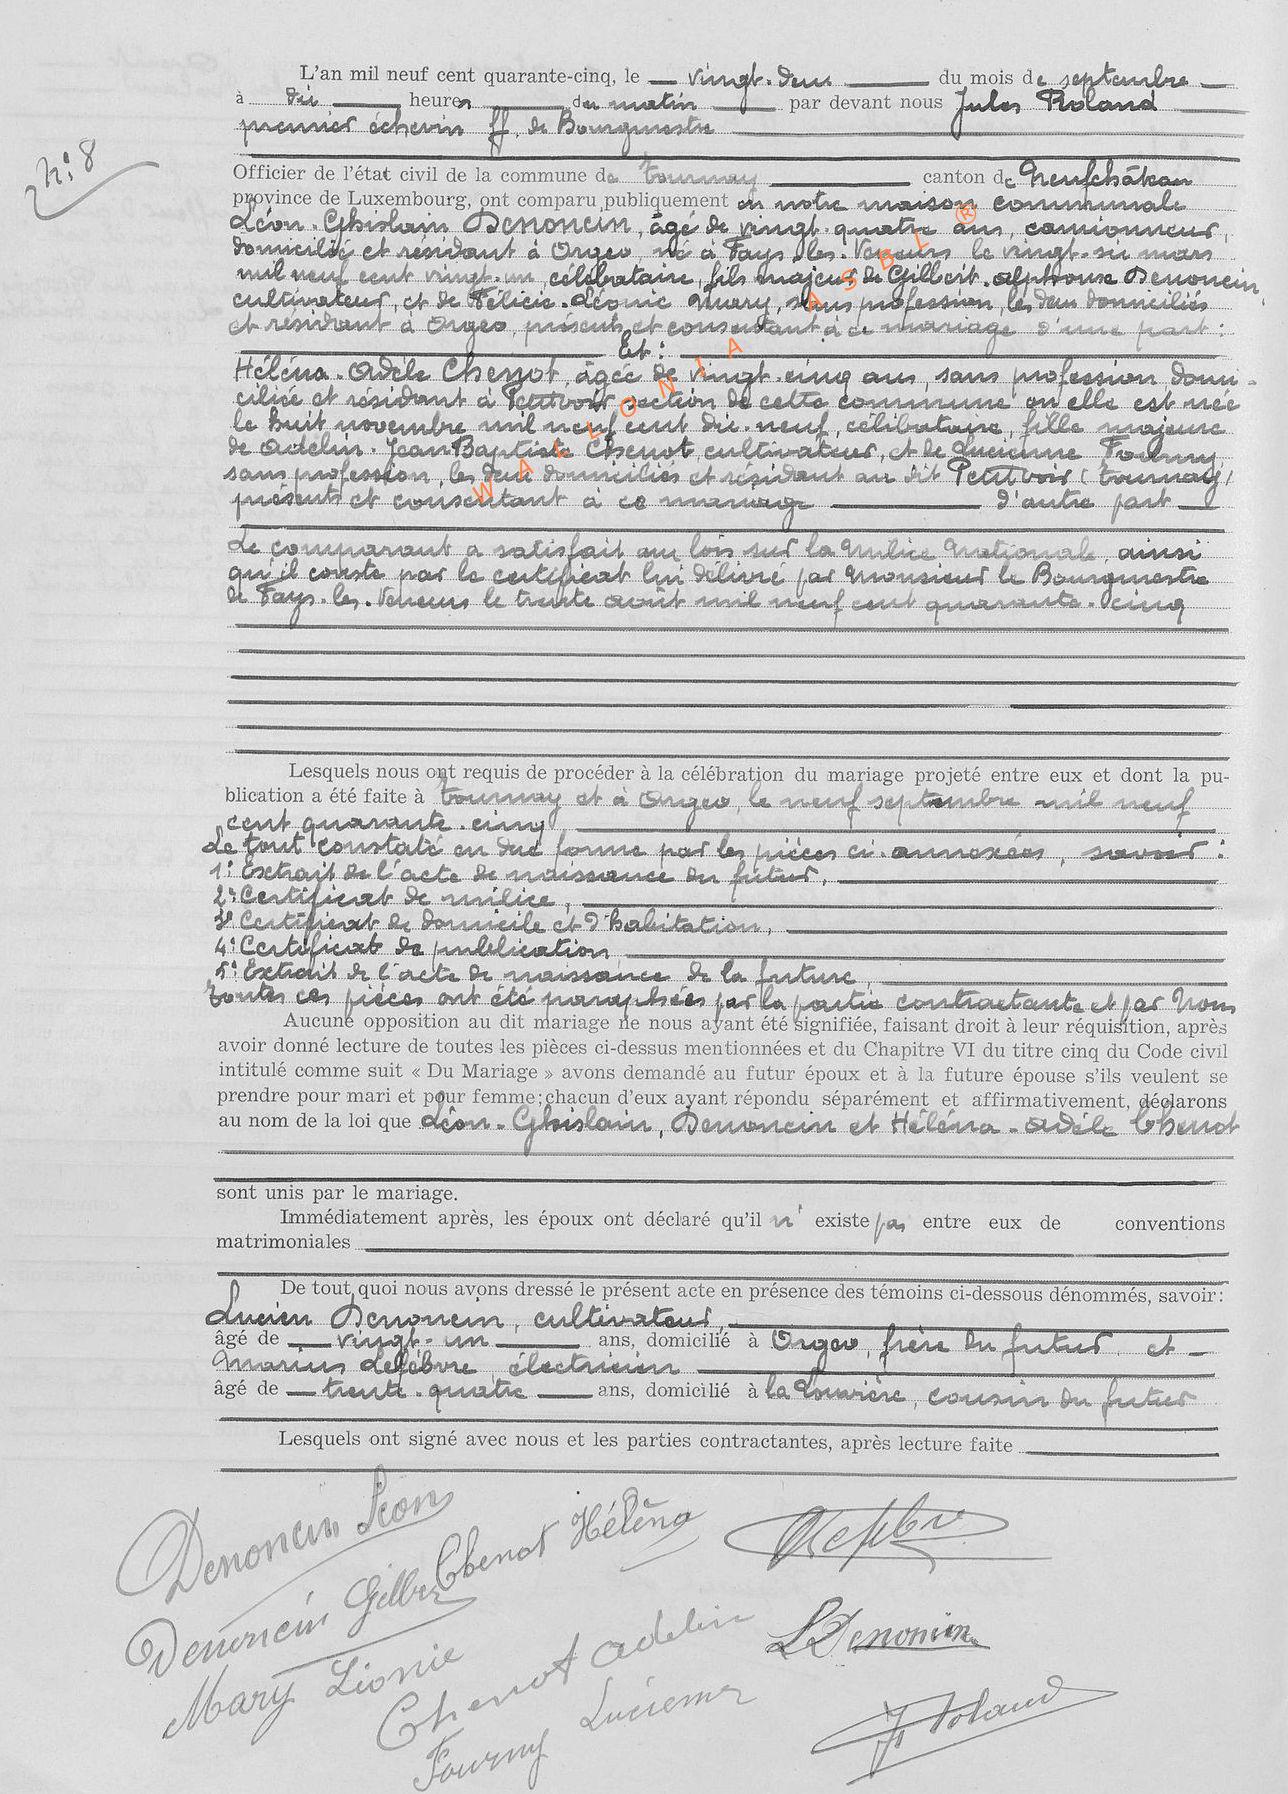 L'an mil neuf cent quarante-cinq, le vingt-deux du mois de septembre
à dix heures du matin par devant nous Jules Roland
premier échevin ff. de Bourgmestre
N° 8
Officier de l'état civil de la commune de Tournay canton de Neufchâteau
province de Luxembourg, ont comparu publiquement en notre maison communale
Léon-Ghislain Denoncin, âgé de vingt-quatre ans, camionneur,
domicilié et résidant à Orgeo, né à Fays-les-Veneurs le vingt-six mars
mil neuf cent vingt-un, célibataire, fils majeur de Gilbert-Alphonse Denoncin,
cultivateur, et de Félicie-Léonie Mary, sans profession, les deux domiciliés
et résidant à Orgeo, présents et consentant à ce mariage d'une part :
Et :
Héléna-Adèle Chenot, âgée de vingt-cinq ans, sans profession domi-
ciliée et résidant à Petitvoir section de cette commune où elle est née
le huit novembre mil neuf cent dix-neuf, célibataire, fille majeure
de Adelin-Jean Baptiste Chenot cultivateur, et de Lucienne Fourny
sans profession, les deux domiciliés et résidant au dit Petitvoir (Tournay)
présents et consentant à ce mariage d'autre part
Le comparant a satisfait aux lois sur la Milice Nationale, ainsi
qu'il conste par le certificat lui délivré par Monsieur le Bourgmestre
de Fays-les-Veneurs le trente août mil neuf cent quarante-cinq
Lesquels nous ont requis de procéder à la célébration du mariage projeté entre eux et dont la pu-
blication a été faite à Tournay et à Orgeo, le neuf septembre mil neuf
cent quarante-cinq
Le tout constaté en due forme par les pièces ci-annexées, savoir :
1° Extrait de l'acte de naissance du futur,
2° Certificat de milice,
3° Certificat de domicile et d'habitation,
4° Certificat de publication
5° Extrait de l'acte de naissance de la future,
Toutes ces pièces ont été paraphées par la partie contractante et par Nous
Aucune opposition au dit mariage ne nous ayant été signifiée, faisant droit à leur réquisition, après
avoir donné lecture de toutes les pièces ci-dessus mentionnées et du Chapitre VI du titre cinq du Code civil
intitulé comme suit « Du Mariage » avons demandé au futur époux et à la future épouse s'ils veulent se
prendre pour mari et pour femme; chacun d'eux ayant répondu séparément et affirmativement, déclarons
au nom de la loi que Léon-Ghislain, Denoncin et Héléna-Adèle Chenot
sont unis par le mariage.
Immédiatement après, les époux ont déclaré qu'il n'existe pas entre eux de conventions
matrimoniales
De tout quoi nous avons dressé le présent acte en présence des témoins ci-dessous dénommés, savoir:
Lucien Denoncin, cultivateur,
âgé de vingt-un ans, domicilié à Orgeo, frère du futur et
Marius Lefèbvre électricien
âgé de trente-quatre ans, domicilié à la Louvière, cousin du futur
Lesquels ont signé avec nous et les parties contractantes, après lecture faite
Denoncin Léon
Chenot Héléna
Lefebvre
Denoncin Gilbert
Mary Léonie
Chenot Adelin
L Denoncin
Fourny Lucienne
J Roland
WALLONIA ASBL ®